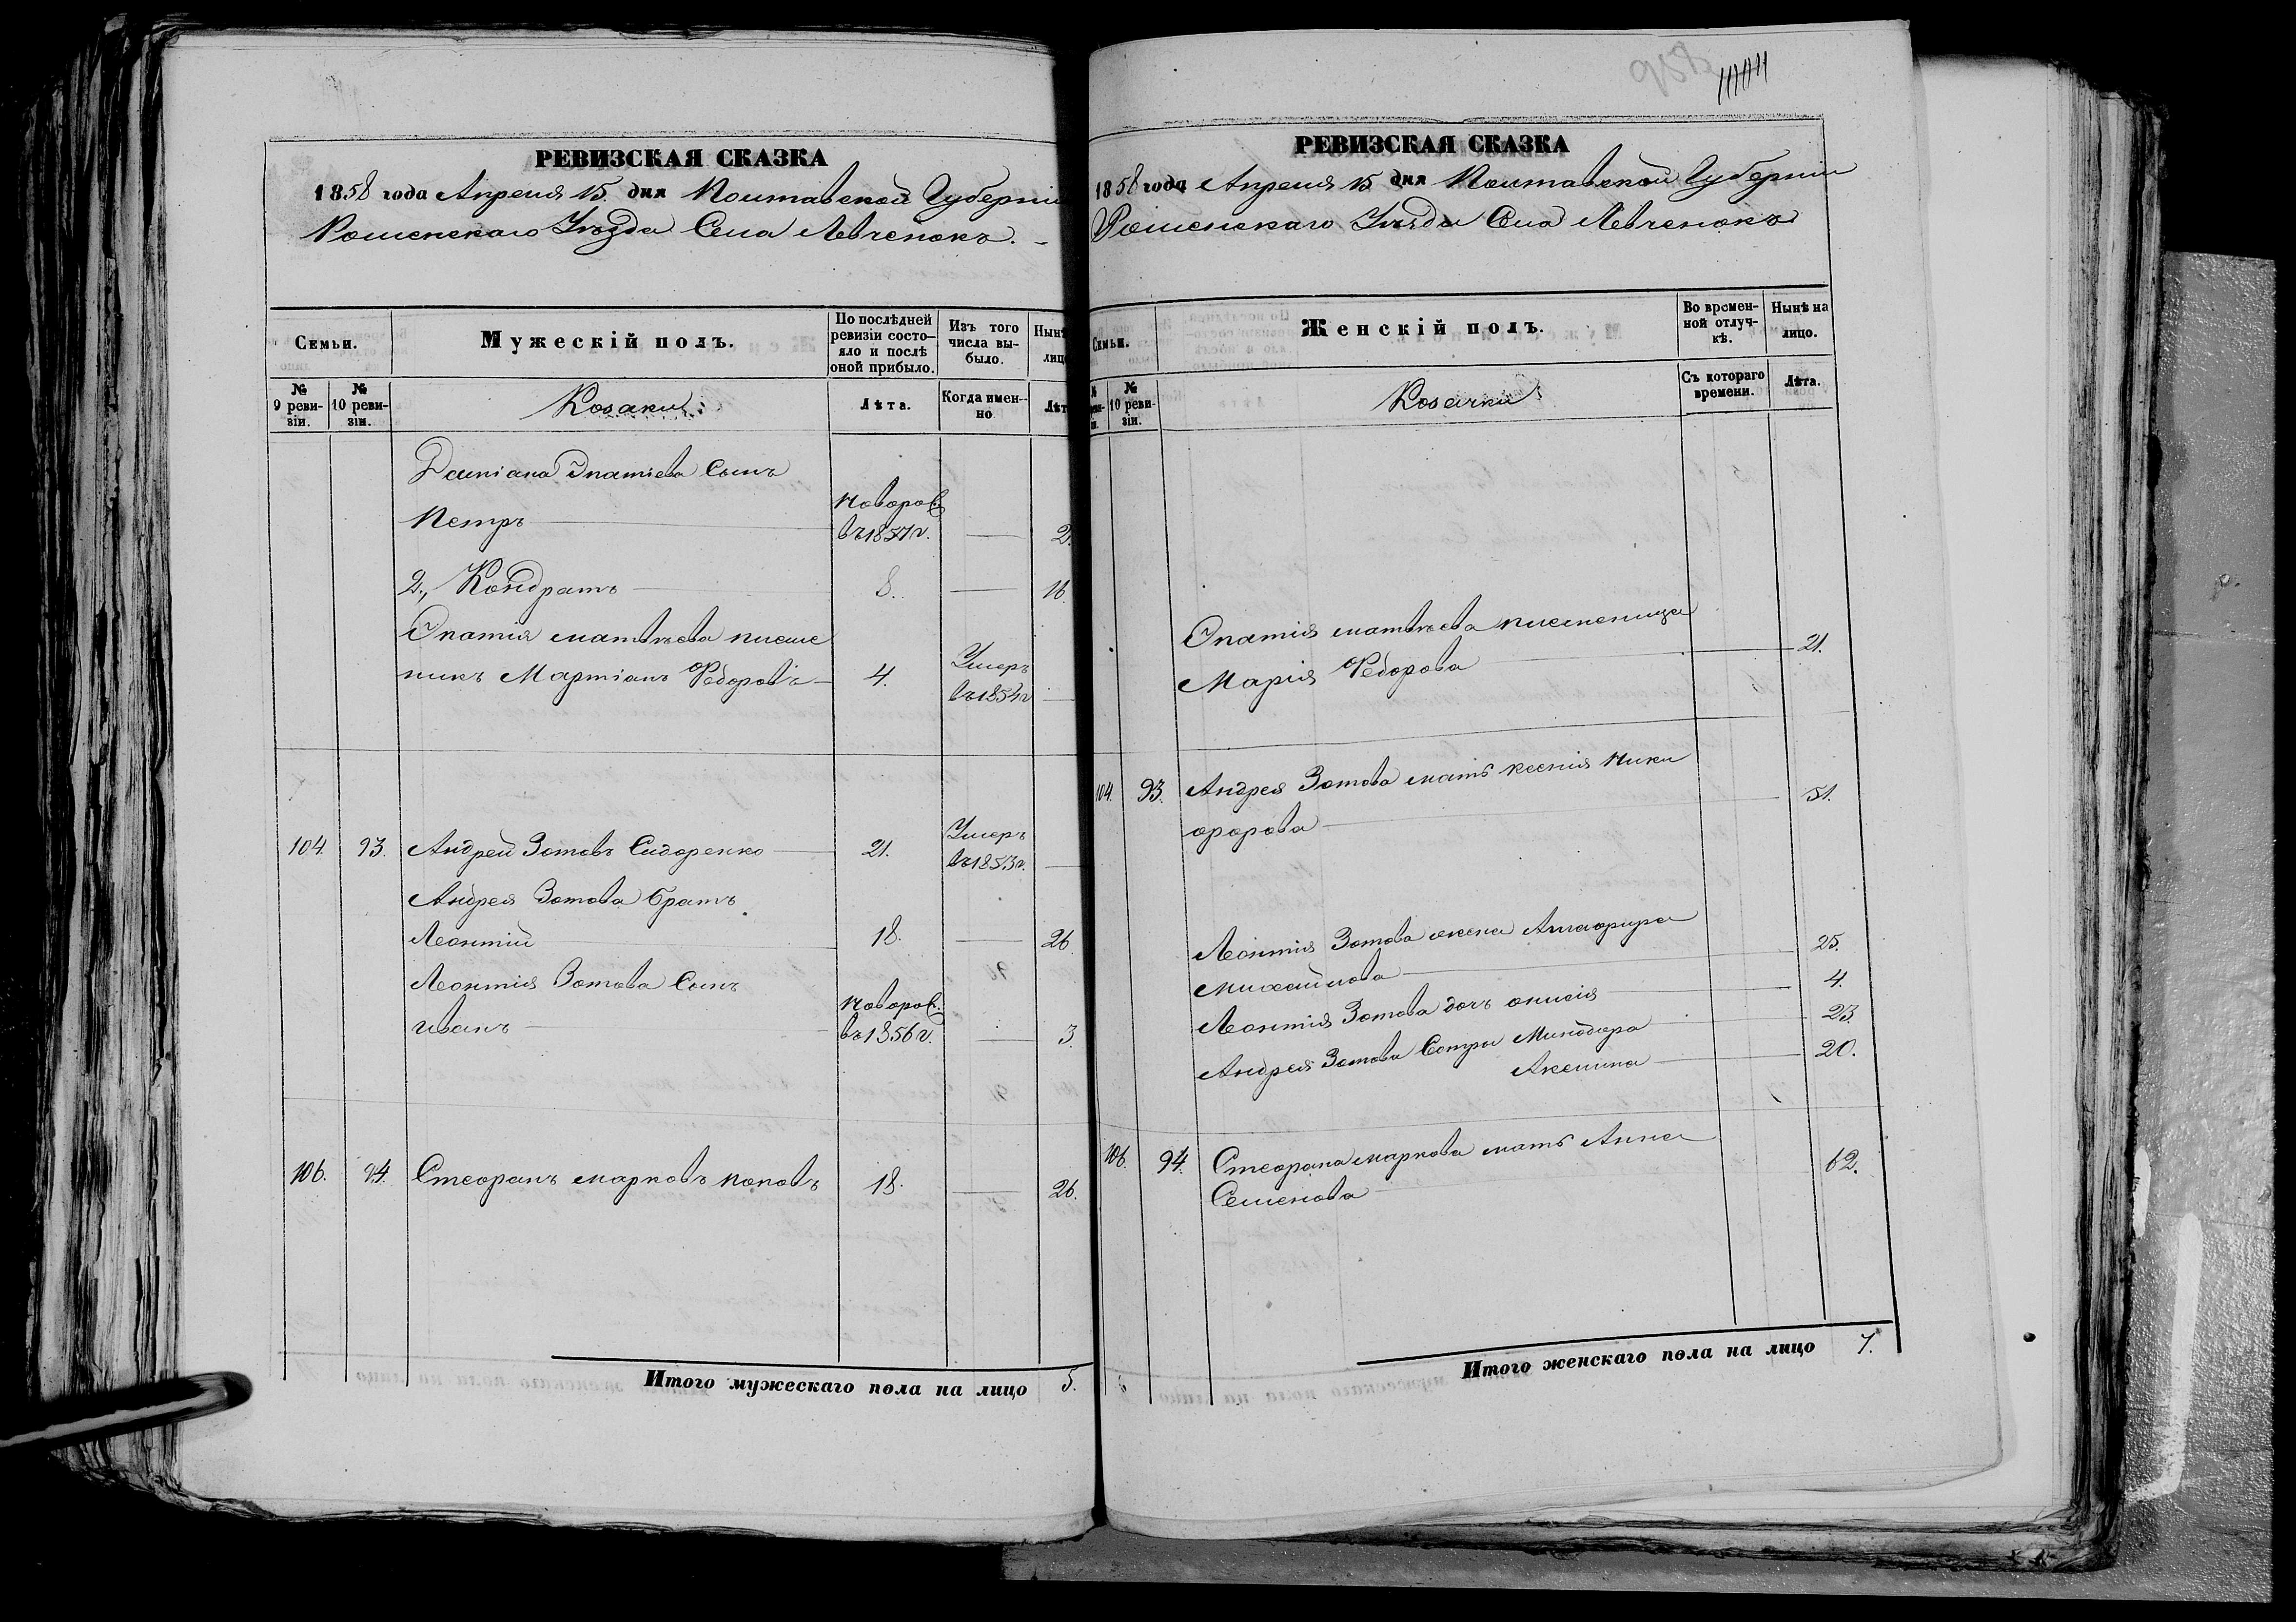 РЕВИЗСКАЯ СКАЗКА
1858 года Апреля 15 дня Полтавской Губерніи
Роменскаго Уѣзда Села Левченокъ.
Семьи.
Мужескій полъ.
По послѣдней ревизіи состояло и послѣ оной прибыло.
Изъ того числа выбыло.
Нынѣ
лицо
№ 9 ревизіи.
№ 10 ревизіи.
Козаки
Лѣта.
Когда именно
Лѣт
Даміана Ипатіева Сынъ
Петръ
новорож въ 1857 г.
2.
2., Кондратъ 8. 16.
Ипатія матвѣева племе
никъ Мартіанъ Федоровъ 4. Умеръ въ 1854 г
104. 93. Андрей Зотовъ Сидоренко 21. Умеръ въ 1853 г.
Андрея Зотова братъ
Леонтій 18. 26
Леонтія Зотова Сынъ
иванъ новорож. въ 1856 г. 3.
106. 94. Стефанъ марковъ поповъ 18. 26.
Итого мужескаго пола на лицо 5.
РЕВИЗСКАЯ СКАЗКА
1858 года Апреля 15 дня Полтавской Губерніи
Роменскаго Уѣзда Села Левченокъ
Семьи.
Женскій полъ.
Во временной отлучкѣ.
Нынѣ на лицо.
№ 10 ревизіи.
Козачки
Съ котораго времени.
Лѣта.
Ипатія матвѣева племеница
Марія Федорова 21.
104. 93. Андрея Зотова мать ксенія Ники
форова 51.
Леонтія Зотова жена Агафира
михайлова 25.
Леонтія Зотова дочь онисія 4.
Андрея Зотова Сестры Минодора 23
Акелина 20.
106. 94. Стефана маркова мать Анна
Семенова 62.
Итого женскаго пола на лицо 7.